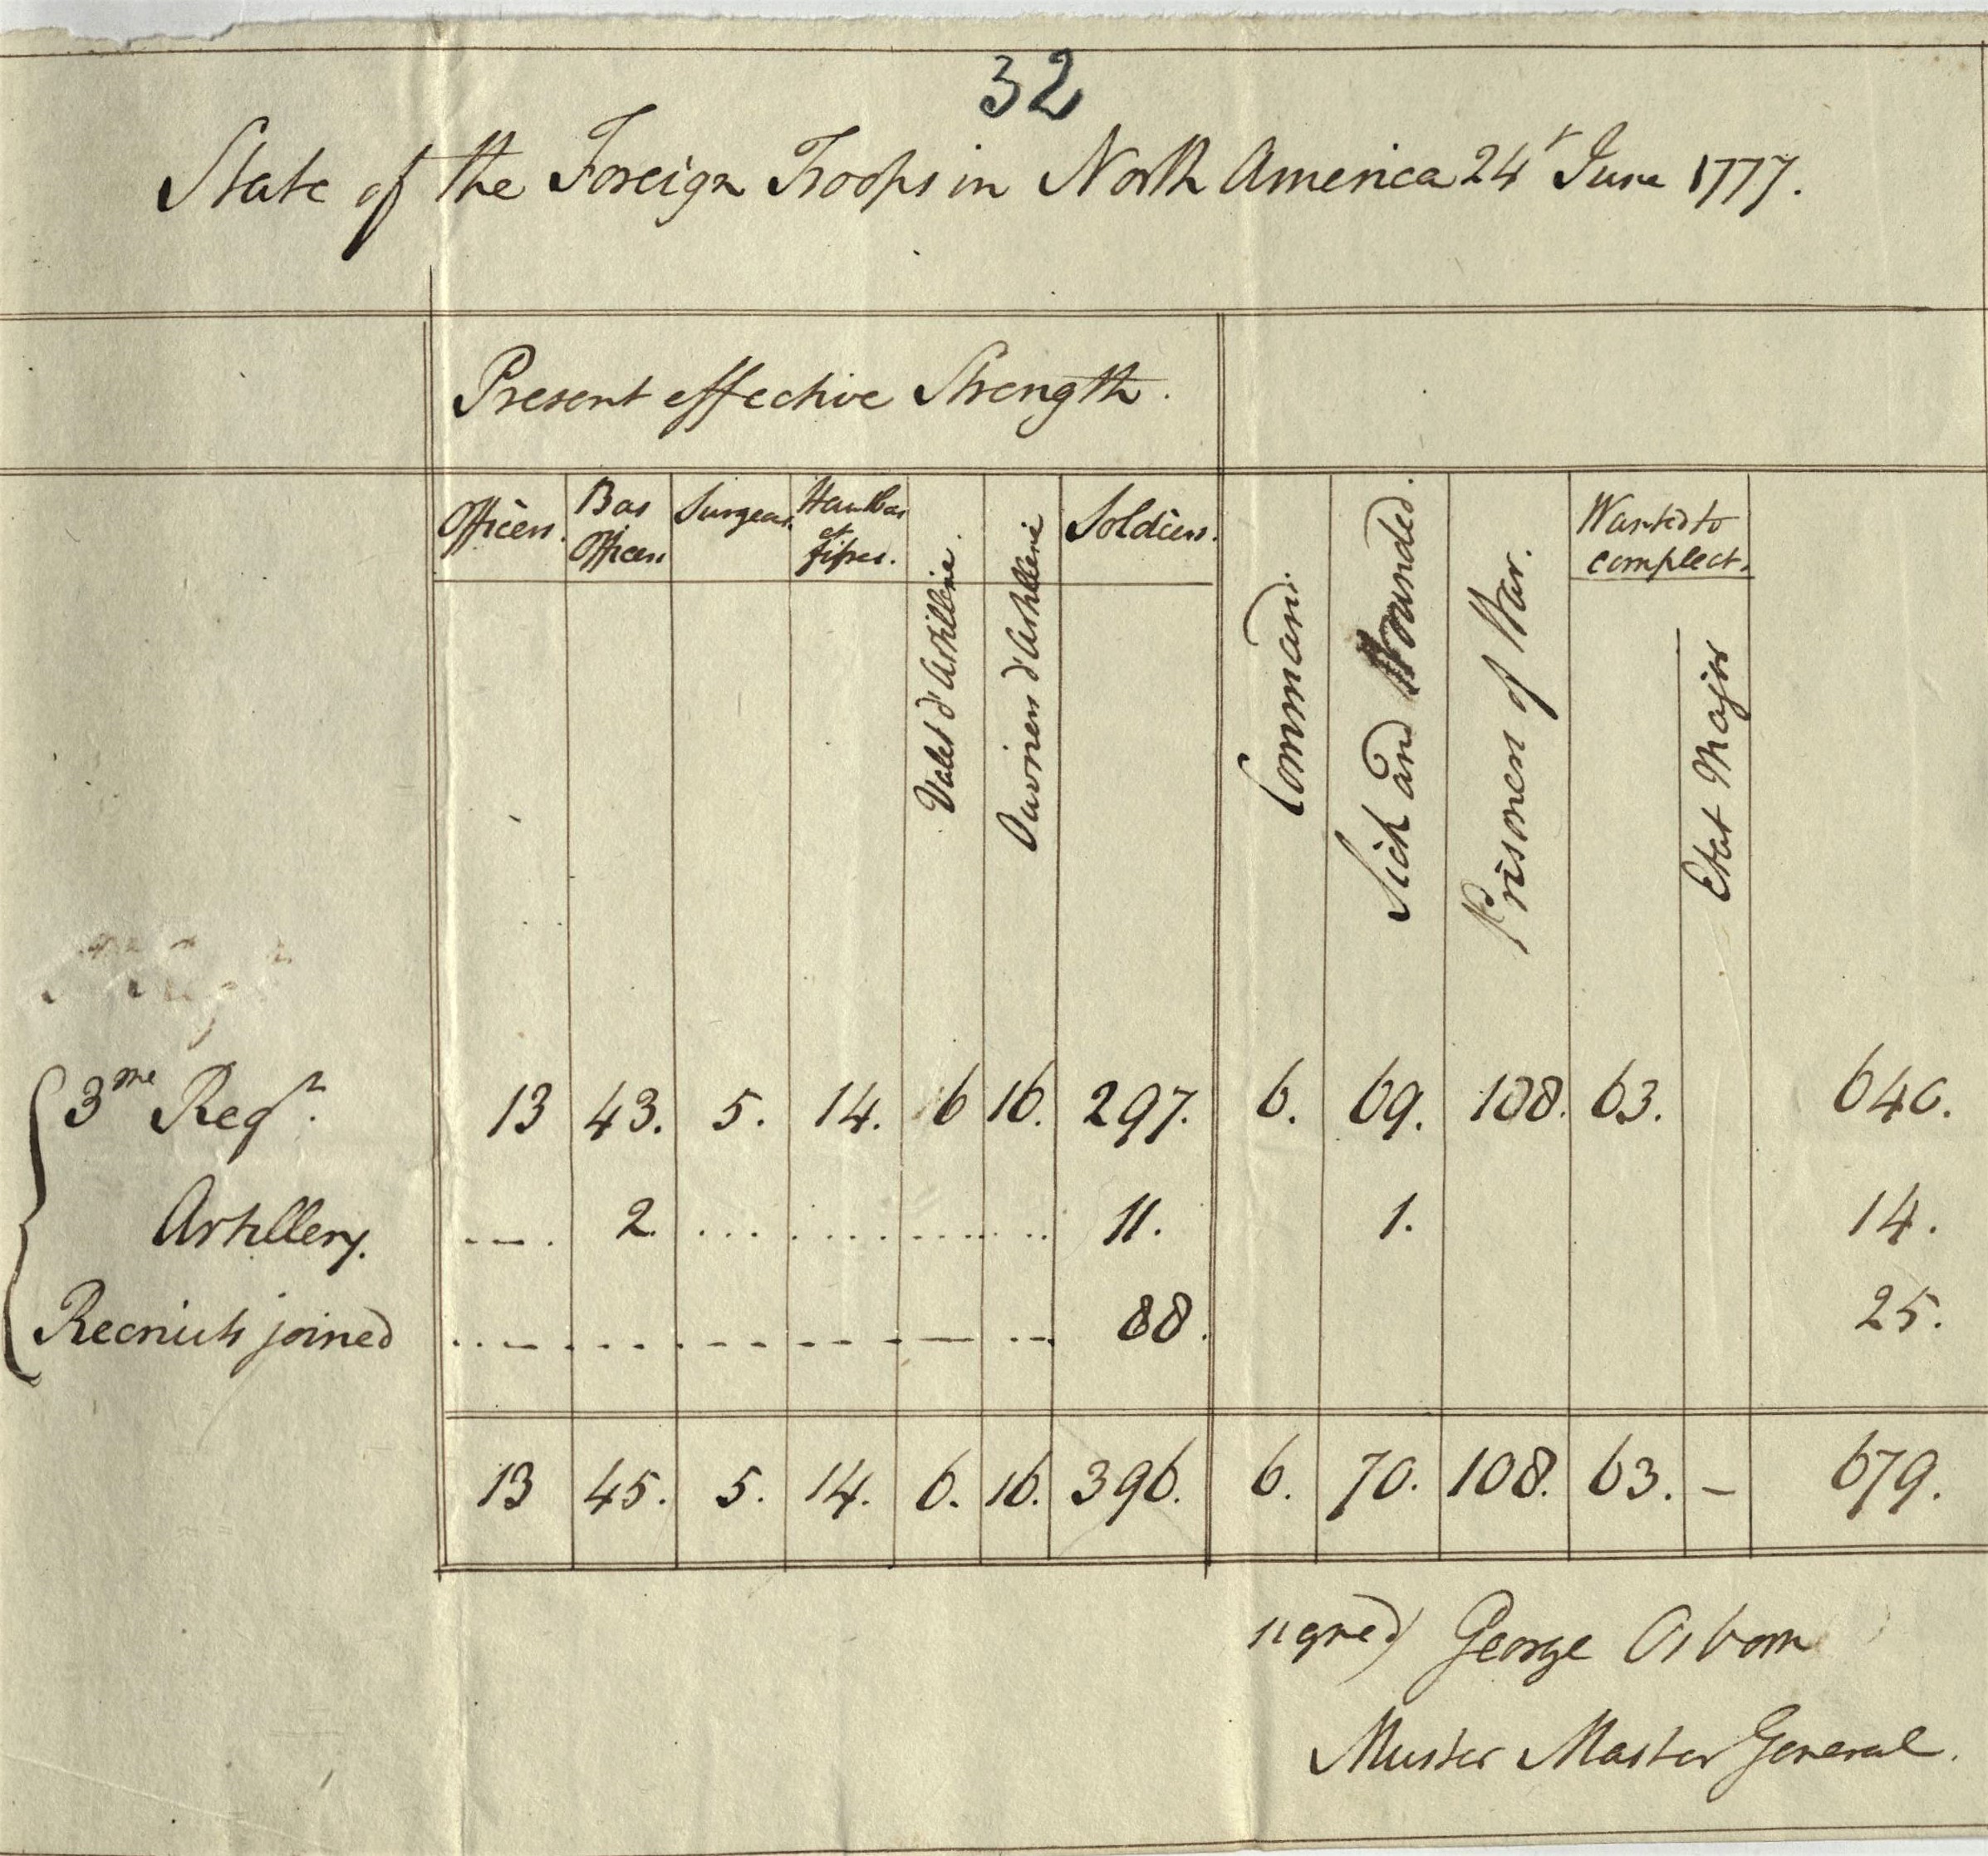 32
State of the Foreign Troops in North America 24t June 1777.
Present effective Strength.
Officers. Bas Officers Surgeons. Hautbas et fifres. Valet d'Artillerie. Ouvriers d'Artillerie Soldiers. Command. Sick and Wounded. Prisoners of War. Wanted to compleat. Etat Major
3me Regt. 13 43. 5. 14. 6 16. 297. 6. 69. 108. 63. 640.
Artillery. 2. 11. 1. 14.
Recruits joined 88. 25.
13 45. 5. 14. 6. 16. 396. 6. 70. 108. 63. – 679.
signed) George Osborn
Muster Master General.